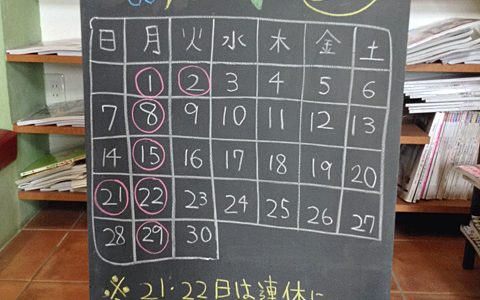 日 月 火 水 木 金 土
1 2 3 4 5 6
7 8 9 10 11 12 13
14 15 16 17 18 19 20
21 22 23 24 25 26 27
28 29 30
※ 21・22日は連休に